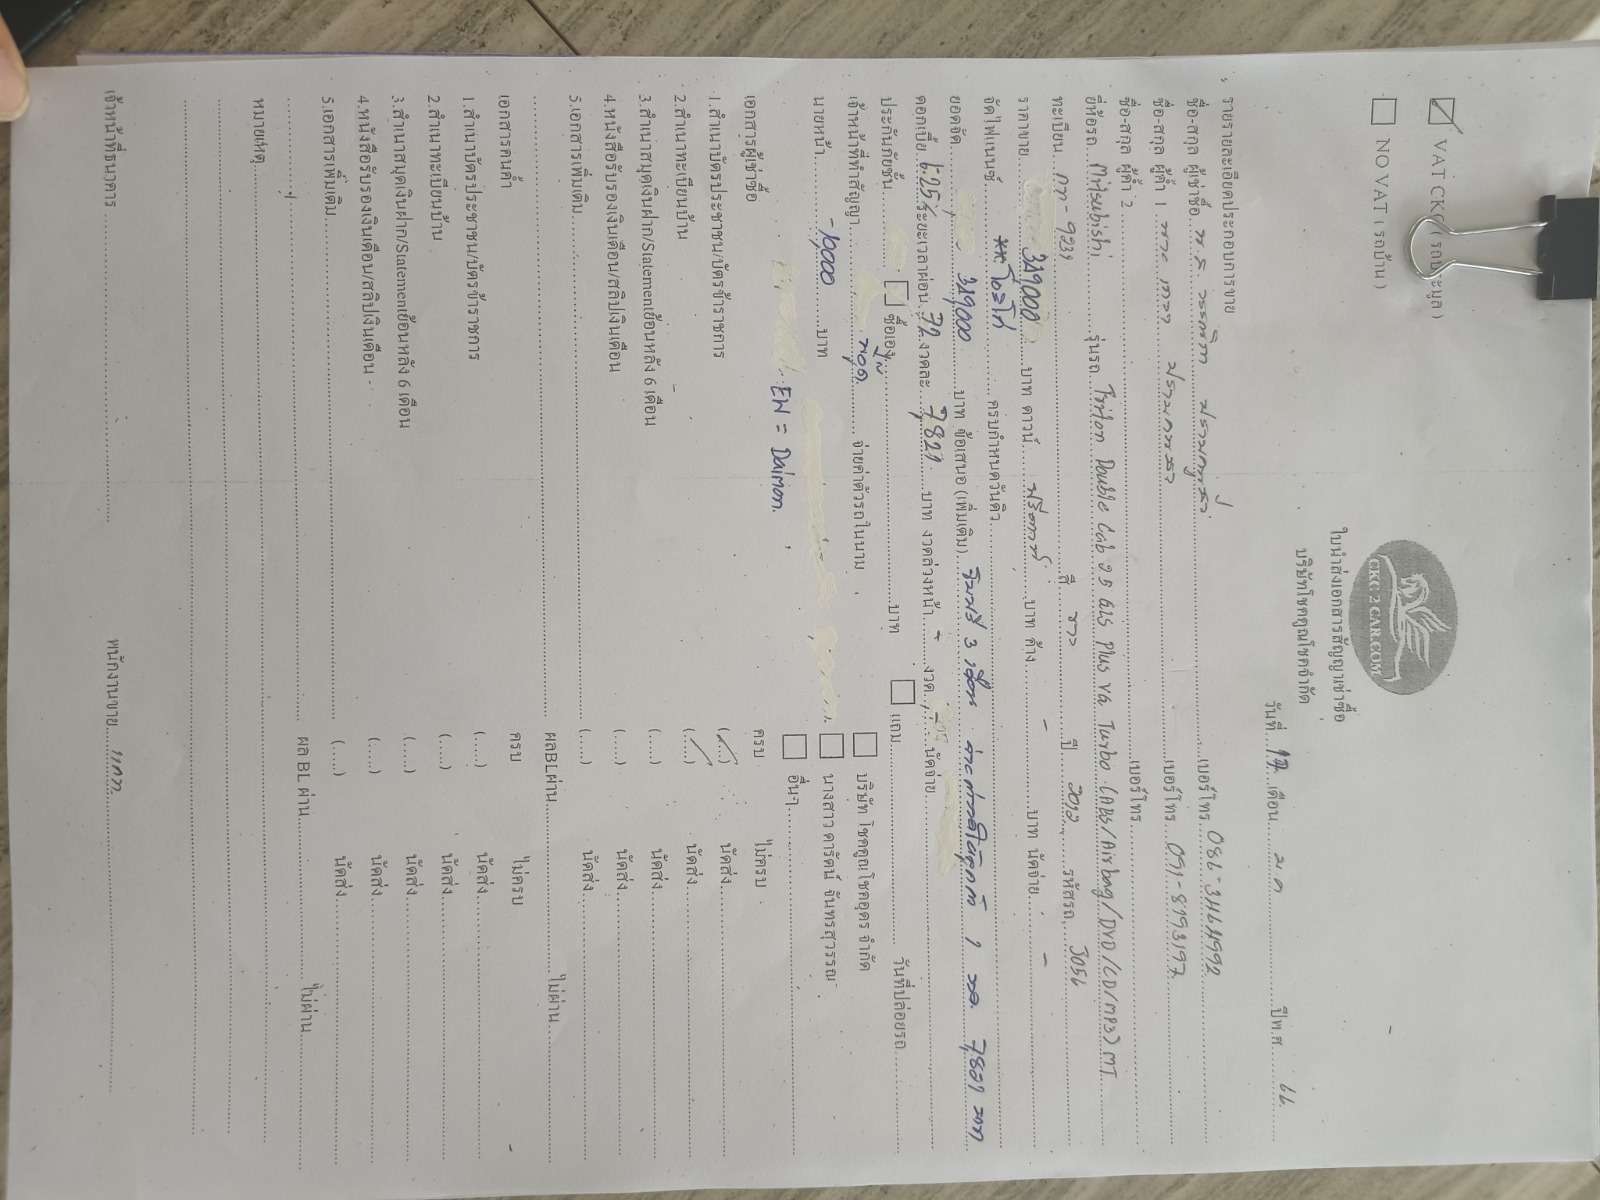 VAT CKC ( รถประมูล )
NO VAT ( รถบ้าน )
CKC 2 CAR.COM
ใบนำส่งเอกสารสัญญาเช่าซื้อ
บริษัทโชคคูณโชคจำกัด
วันที่ 17 เดือน ม.ค ปีพ.ศ 66
รายรายละเอียดประกอบการขาย
ชื่อ-สกุล ผู้เช่าซื้อ เบอร์โทร 086-3464992
ชื่อ-สกุล ผู้ค้ำ 1 เบอร์โทร 091-8193197
ชื่อ-สกุล ผู้ค้ำ 2 เบอร์โทร
ยี่ห้อรถ Mitsubishi รุ่นรถ Triton Double Cab 2.5 GLS Plus VG Turbo (ABS/Airbag/DVD/CD/MP3) MT
ทะเบียน กก-9239 สี ขาว ปี 2012 รหัสรถ J056
ราคาขาย 349,000 บาท ดาวน์ ฟรีดาวน์ บาท ค้าง - บาท นัดจ่าย -
จัดไฟแนนซ์ ครบกำหนดวันคิว
ยอดจัด 349,000 บาท ข้อเสนอ (เพิ่มเติม) 3 เดือน 1 งวด 7,821 บาท
ดอกเบี้ย 6.25% ระยะเวลาผ่อน 72 งวดละ 7,821 บาท งวดล่วงหน้า - งวด นัดจ่าย
ประกันภัยชั้น ซื้อเอง บาท แถม วันที่ปล่อยรถ
เจ้าหน้าที่ทำสัญญา จ่ายค่าตัวรถในนาม บริษัท โชคคูณโชคอุดร จำกัด
นายหน้า -10,000 บาท นางสาว ดารัตน์ จันทรสุวรรณ
EW = Daimon อื่นๆ
เอกสารผู้เช่าซื้อ ครบ ไม่ครบ
1.สำเนาบัตรประชาชน/บัตรข้าราชการ (....) นัดส่ง
2.สำเนาทะเบียนบ้าน (....) นัดส่ง
3.สำเนาสมุดเงินฝาก/Statementย้อนหลัง 6 เดือน (....) นัดส่ง
4.หนังสือรับรองเงินเดือน/สลิปเงินเดือน (....) นัดส่ง
5.เอกสารเพิ่มเติม (....) นัดส่ง
ผลBLผ่าน ไม่ผ่าน
เอกสารคนค้ำ ครบ ไม่ครบ
1.สำเนาบัตรประชาชน/บัตรข้าราชการ (....) นัดส่ง
2.สำเนาทะเบียนบ้าน (....) นัดส่ง
3.สำเนาสมุดเงินฝาก/Statementย้อนหลัง 6 เดือน (....) นัดส่ง
4.หนังสือรับรองเงินเดือน/สลิปเงินเดือน (....) นัดส่ง
5.เอกสารเพิ่มเติม (....) นัดส่ง
ผลBL ผ่าน ไม่ผ่าน
หมายเหตุ
เจ้าหน้าที่ธนาคาร พนักงานขาย